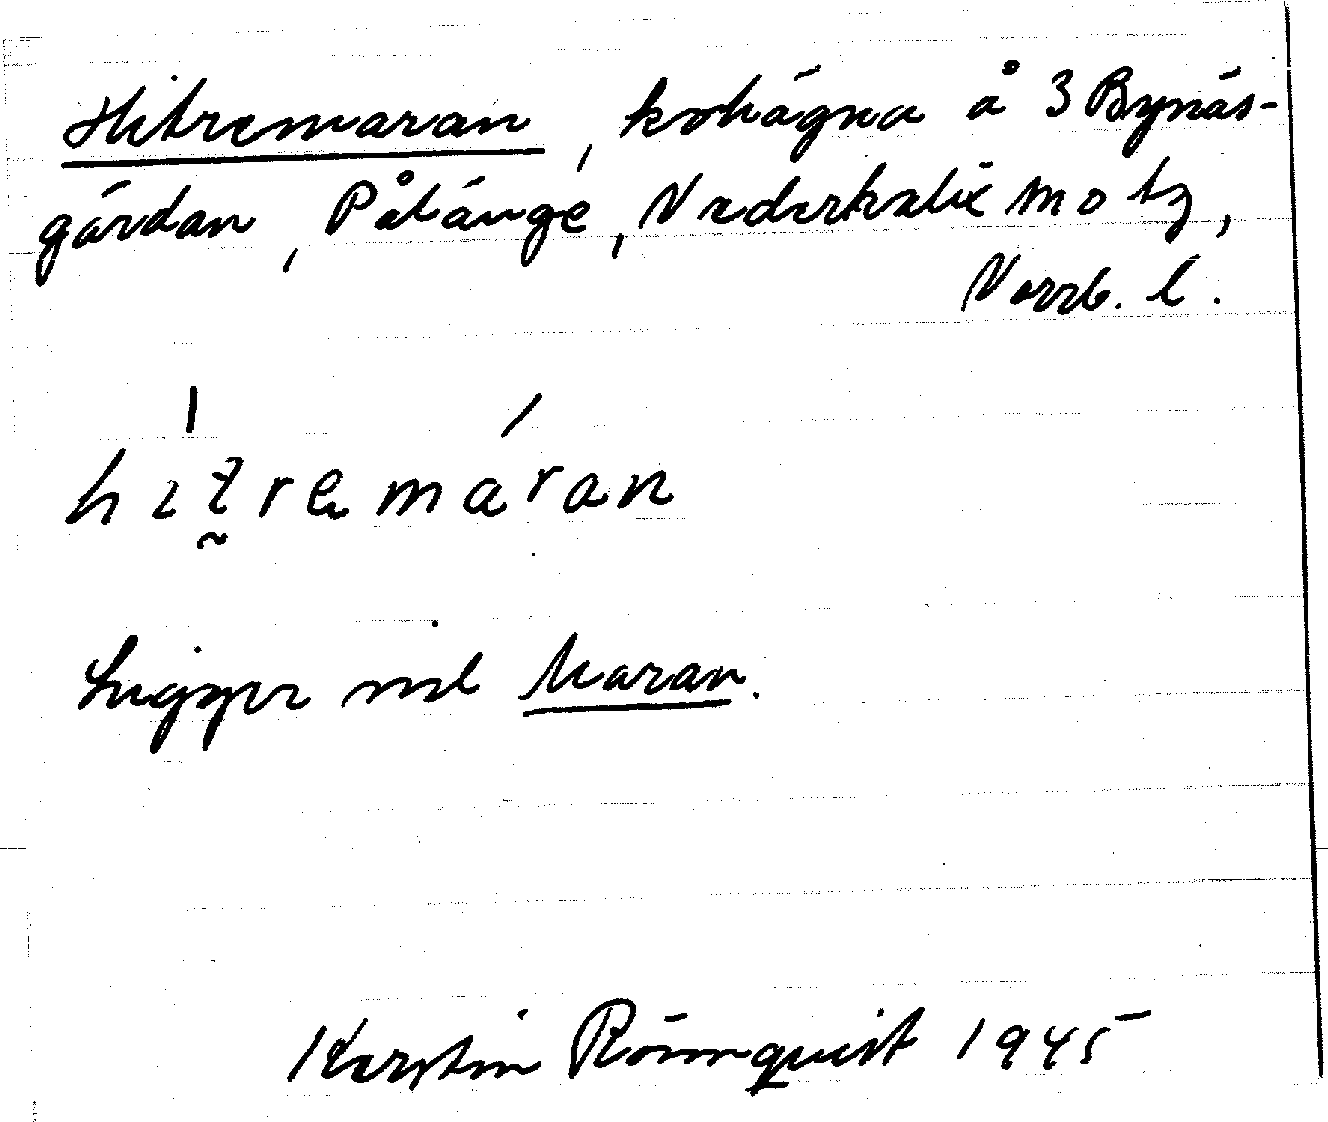 Hitremaran, kohägna å 3 Bynäs-
gården, Pålänge, Nederkalix sn o tg,
Norrb. l.
hitremáran
Ligger vid Maran.
Kerstin Rönnquist 1945